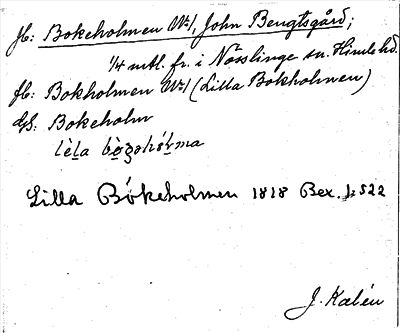 Jb: Bokeholmen N:1, John Bengtsgård;
1/4 mtl. fr. i Nösslinge sn. Himle hd.
Jb: Bokholmen N:1 (Lilla Bokholmen)
GS: Bokeholm
Lilla Bökeholmen 1818 Bex. 1:522
J. Kalén